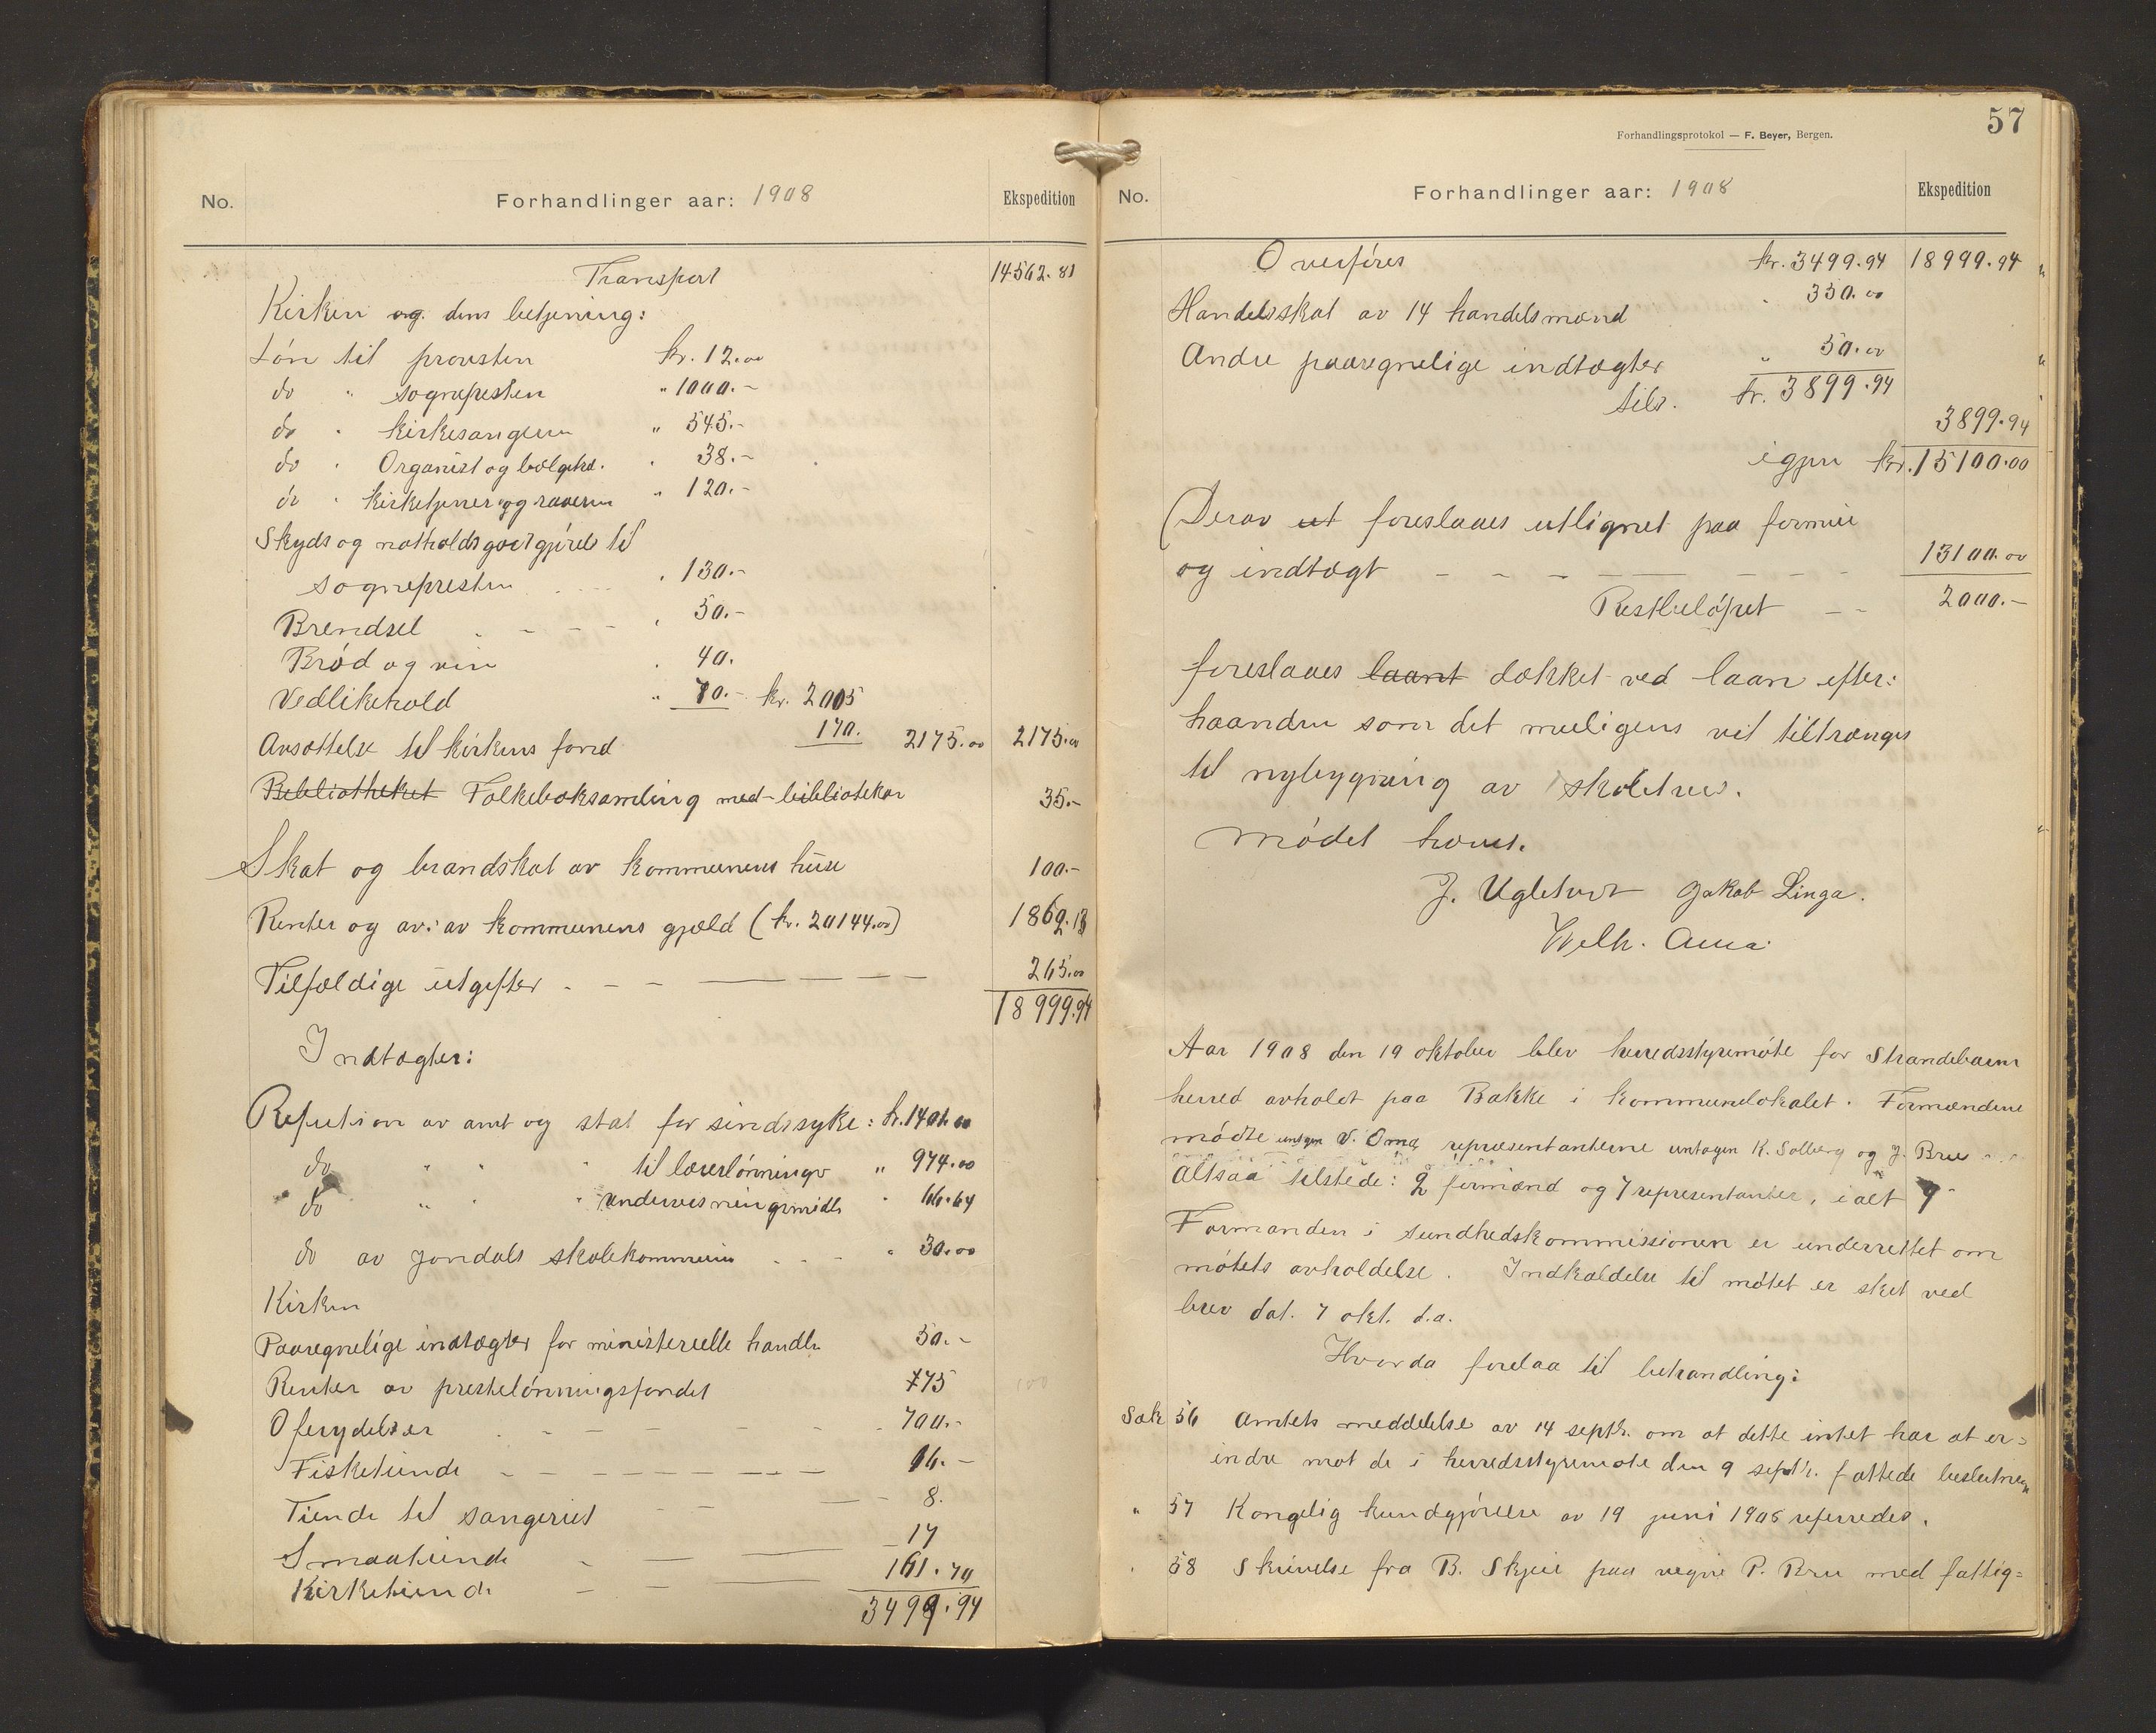 No. Forhandlinger aar: 1908 Ekspedition
Transport 14562.81
Kirken og dens betjening:
Løn til provsten kr. 12.00
do " sognepresten " 1000.-
do " kirkesangeren " 545.-
do " Organist og bælgetræ. " 38.-
do " kirketjener og graveren " 120.-
Skyds og natholdsgodtgjørelse til
sognepresten " 130.-
Brendsel " 50.-
Brød og vin " 40.
Vedlikehold " 70.- kr. 2005
Avsættelse til kirkens fond 170. 2175.00 2175.00
Bibliotheket Folkeboksamling med bibliotekar 35.-
Skat og brandskat av kommunens huse 100.-
Renter og av: av kommunens gjæld (kr. 20144.00) 1862.13
Tilfældige utgifter 265.00
18999.94
Indtægter:
Refusion av amt og stat for sindssyke: kr. 1401.60
do " " " til lærerlønninger " 974.00
do " " " undervisningsmidler " 66.64
do av Jondals skolekommune " 30.00
Kirken
Paaregnelige indtægter for ministerielle handlr 50.-
Renter av prestelønningsfondet 775
Ofsrydelser 700.-
Fisketiende 16.-
Tiende til sangeriet 8.
Smaatiende 17
Kirketiende 161.70
3499.94
57
Forhandlingsprotokol — F. Beyer, Bergen.
No. Forhandlinger aar: 1908 Ekspedition
Overføres kr. 3499.94 18999.94
Handelsskat av 14 handelsmænd " 350.00
Andre paaregnelige indtægter " 50.00
tils. kr. 3899.94
3899.94
igjen kr. 15100.00
Derav ut foreslaaes utlignet paa formue
og indtægt 13100.00
Restbeløpet 2000.-
foreslaaes laant dækket ved laan efter:
haanden som det muligens vil tiltrænges
til nybygning av skolehus.
Mødet hævet.
J. Ugletvet Jakob Linga.
Wilh. Ama
Aar 1908 den 19 oktober blev herredsstyremøte for Strandebarm
herred avholdt paa Bakke i kommunelokalet. Formændene
mødte untagen V. Oma, repræsentanterne untagen K. Solberg og J. Bru
Altsaa tilstede: 2 formænd og 7 repræsentanter, i alt 9
Formanden i sundhedskommissionen er underrettet om
møtets avholdelse. Indkaldelse til møtet er sket ved
brev dat. 7 okt. d.a.
Hvorda forelaa til behandling:
Sak 56 Amtets meddelelse av 14 septbr. om at dette intet har at er=
indre mot de i herredsstyremøte den 9 septbr. fattede beslutninger
" 57 Kongelig kundgjørelse av 19 juni 1908 referedes.
" 58 Skrivelse fra B. Skjeie paa vegne P. Bru med fattig=